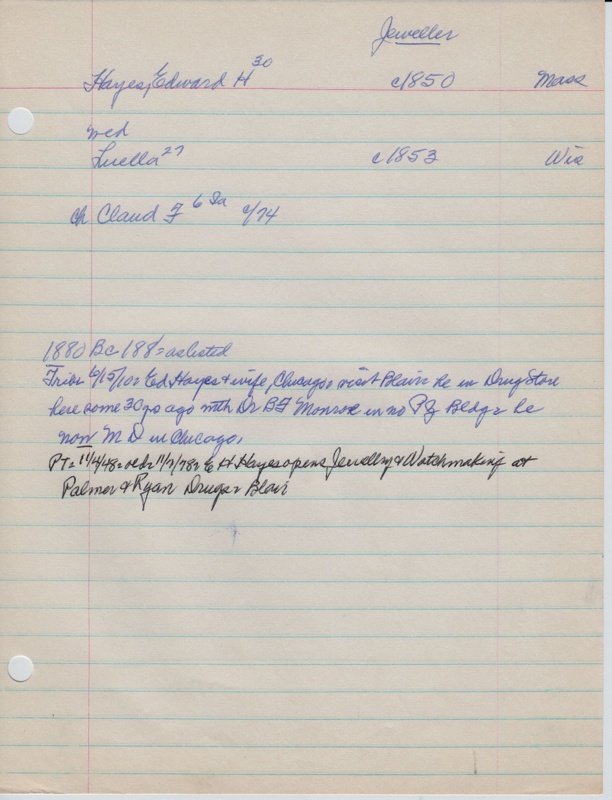 Jeweller
Hayes, Edward H 30 c1850 Mass
wed
Luella 27 c1853 Wis
ch Claud F 6 Ia c/74
1880 Bc 188 = as listed
Trib 6/15/10 = Ed Hayes & wife, Chicago = visit Blair he in Drug Store
here some 30 yo ago with Dr B F Monroe in no P.G. Bldg = he
now M D in Chicago.
PT = 11/4/48 = 11/7/78 = E H Hayes opens Jewellry & Watchmaking at
Palmer & Ryan Drugs = Blair